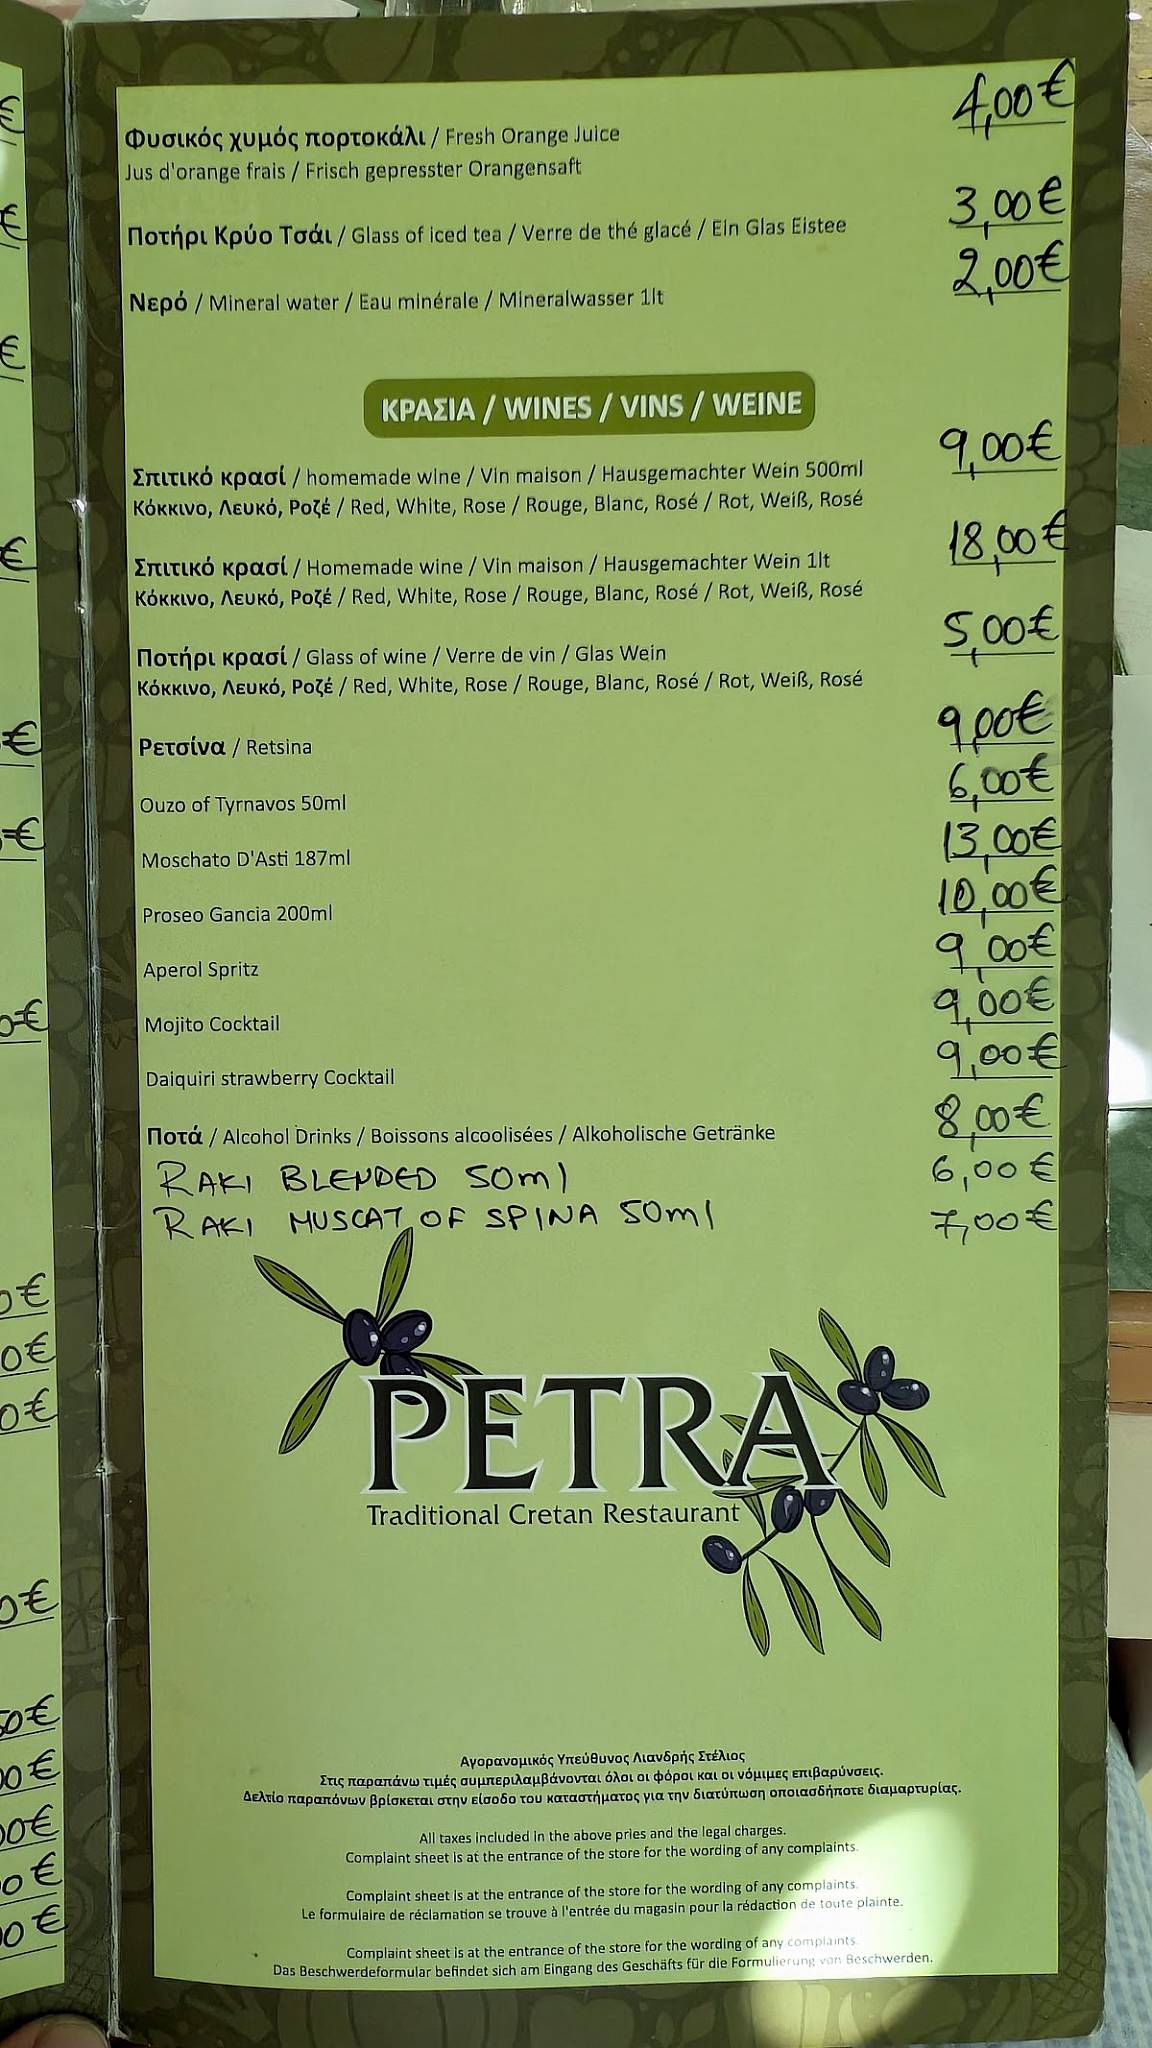 Φυσικός χυμός πορτοκάλι / Fresh Orange Juice 4,00€
Jus d'orange frais / Frisch gepresster Orangensaft
Ποτήρι Κρύο Τσάι / Glass of iced tea / Verre de thé glacé / Ein Glas Eistee 3,00€
Νερό / Mineral water / Eau minérale / Mineralwasser 1lt 2,00€
ΚΡΑΣΙΑ / WINES / VINS / WEINE
Σπιτικό κρασί / homemade wine / Vin maison / Hausgemachter Wein 500ml 9,00€
Κόκκινο, Λευκό, Ροζέ / Red, White, Rose / Rouge, Blanc, Rosé / Rot, Weiß, Rosé
Σπιτικό κρασί / Homemade wine / Vin maison / Hausgemachter Wein 1lt 18,00€
Κόκκινο, Λευκό, Ροζέ / Red, White, Rose / Rouge, Blanc, Rosé / Rot, Weiß, Rosé
Ποτήρι κρασί / Glass of wine / Verre de vin / Glas Wein 5,00€
Κόκκινο, Λευκό, Ροζέ / Red, White, Rose / Rouge, Blanc, Rosé / Rot, Weiß, Rosé
Ρετσίνα / Retsina 9,00€
Ouzo of Tyrnavos 50ml 6,00€
Moschato D'Asti 187ml 13,00€
Proseo Gancia 200ml 10,00€
Aperol Spritz 9,00€
Mojito Cocktail 9,00€
Daiquiri strawberry Cocktail 9,00€
Ποτά / Alcohol Drinks / Boissons alcoolisées / Alkoholische Getränke 8,00€
RAKI BLENDED 50ml 6,00€
RAKI MUSCAT OF SPINA 50ml 7,00€
PETRA
Traditional Cretan Restaurant
Αγορανομικός Υπεύθυνος Λιανδρής Στέλιος
Στις παραπάνω τιμές συμπεριλαμβάνονται όλοι οι φόροι και οι νόμιμες επιβαρύνσεις.
Δελτίο παραπόνων βρίσκεται στην είσοδο του καταστήματος για την διατύπωση οποιασδήποτε διαμαρτυρίας.
All taxes included in the above pries and the legal charges.
Complaint sheet is at the entrance of the store for the wording of any complaints.
Complaint sheet is at the entrance of the store for the wording of any complaints.
Le formulaire de réclamation se trouve à l'entrée du magasin pour la rédaction de toute plainte.
Complaint sheet is at the entrance of the store for the wording of any complaints.
Das Beschwerdeformular befindet sich am Eingang des Geschäfts für die Formulierung von Beschwerden.